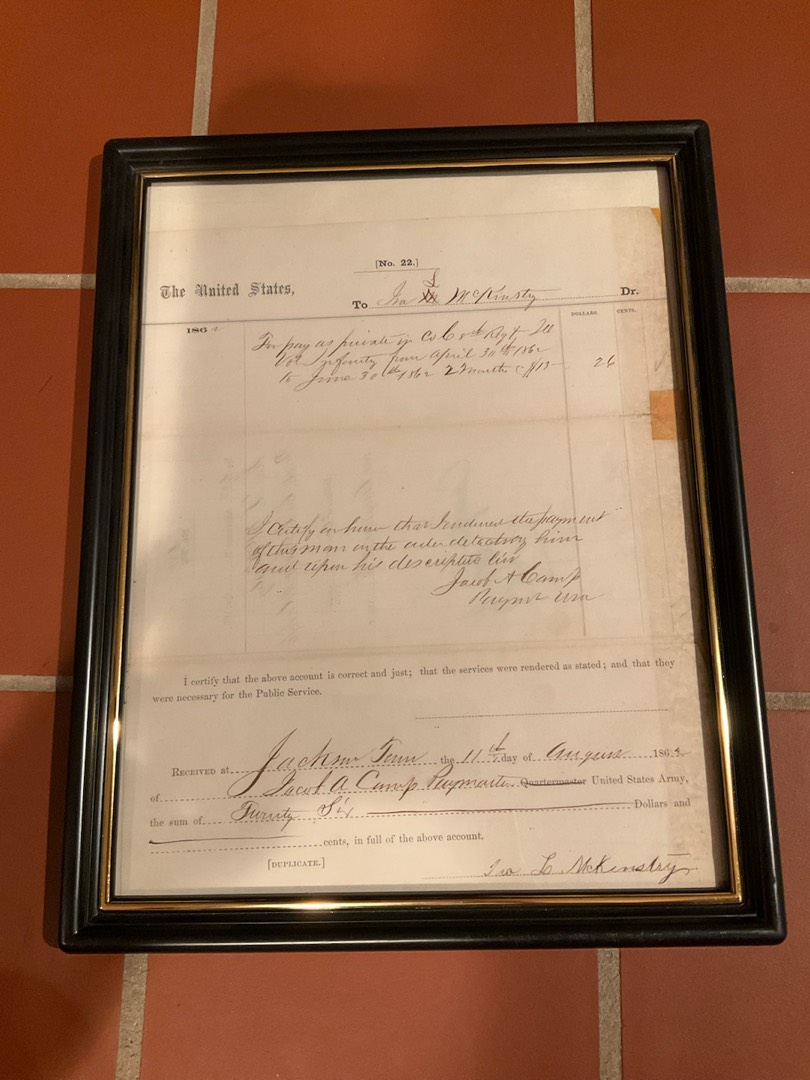 [No. 22.]
The United States,
L
To Ira M McKinsty Dr.
DOLLARS. CENTS.
1862
For pay as private in Co C Regt Ill
Vol Infantry from April 30th 1862
to June 30th 1862 2 Months @ $13 26
I certify on honor that I endorsed the payment
of this man on the order detaching him
and upon his descriptive
Jacob A Camp
Paymr USA
I certify that the above account is correct and just; that the services were rendered as stated; and that they
were necessary for the Public Service.
RECEIVED at Jackson Tenn the 11th day of August 1862
of Jacob A Camp Paymaster Quartermaster United States Army,
the sum of Twenty Six Dollars and
cents, in full of the above account.
[DUPLICATE.]
Ira L McKinstry